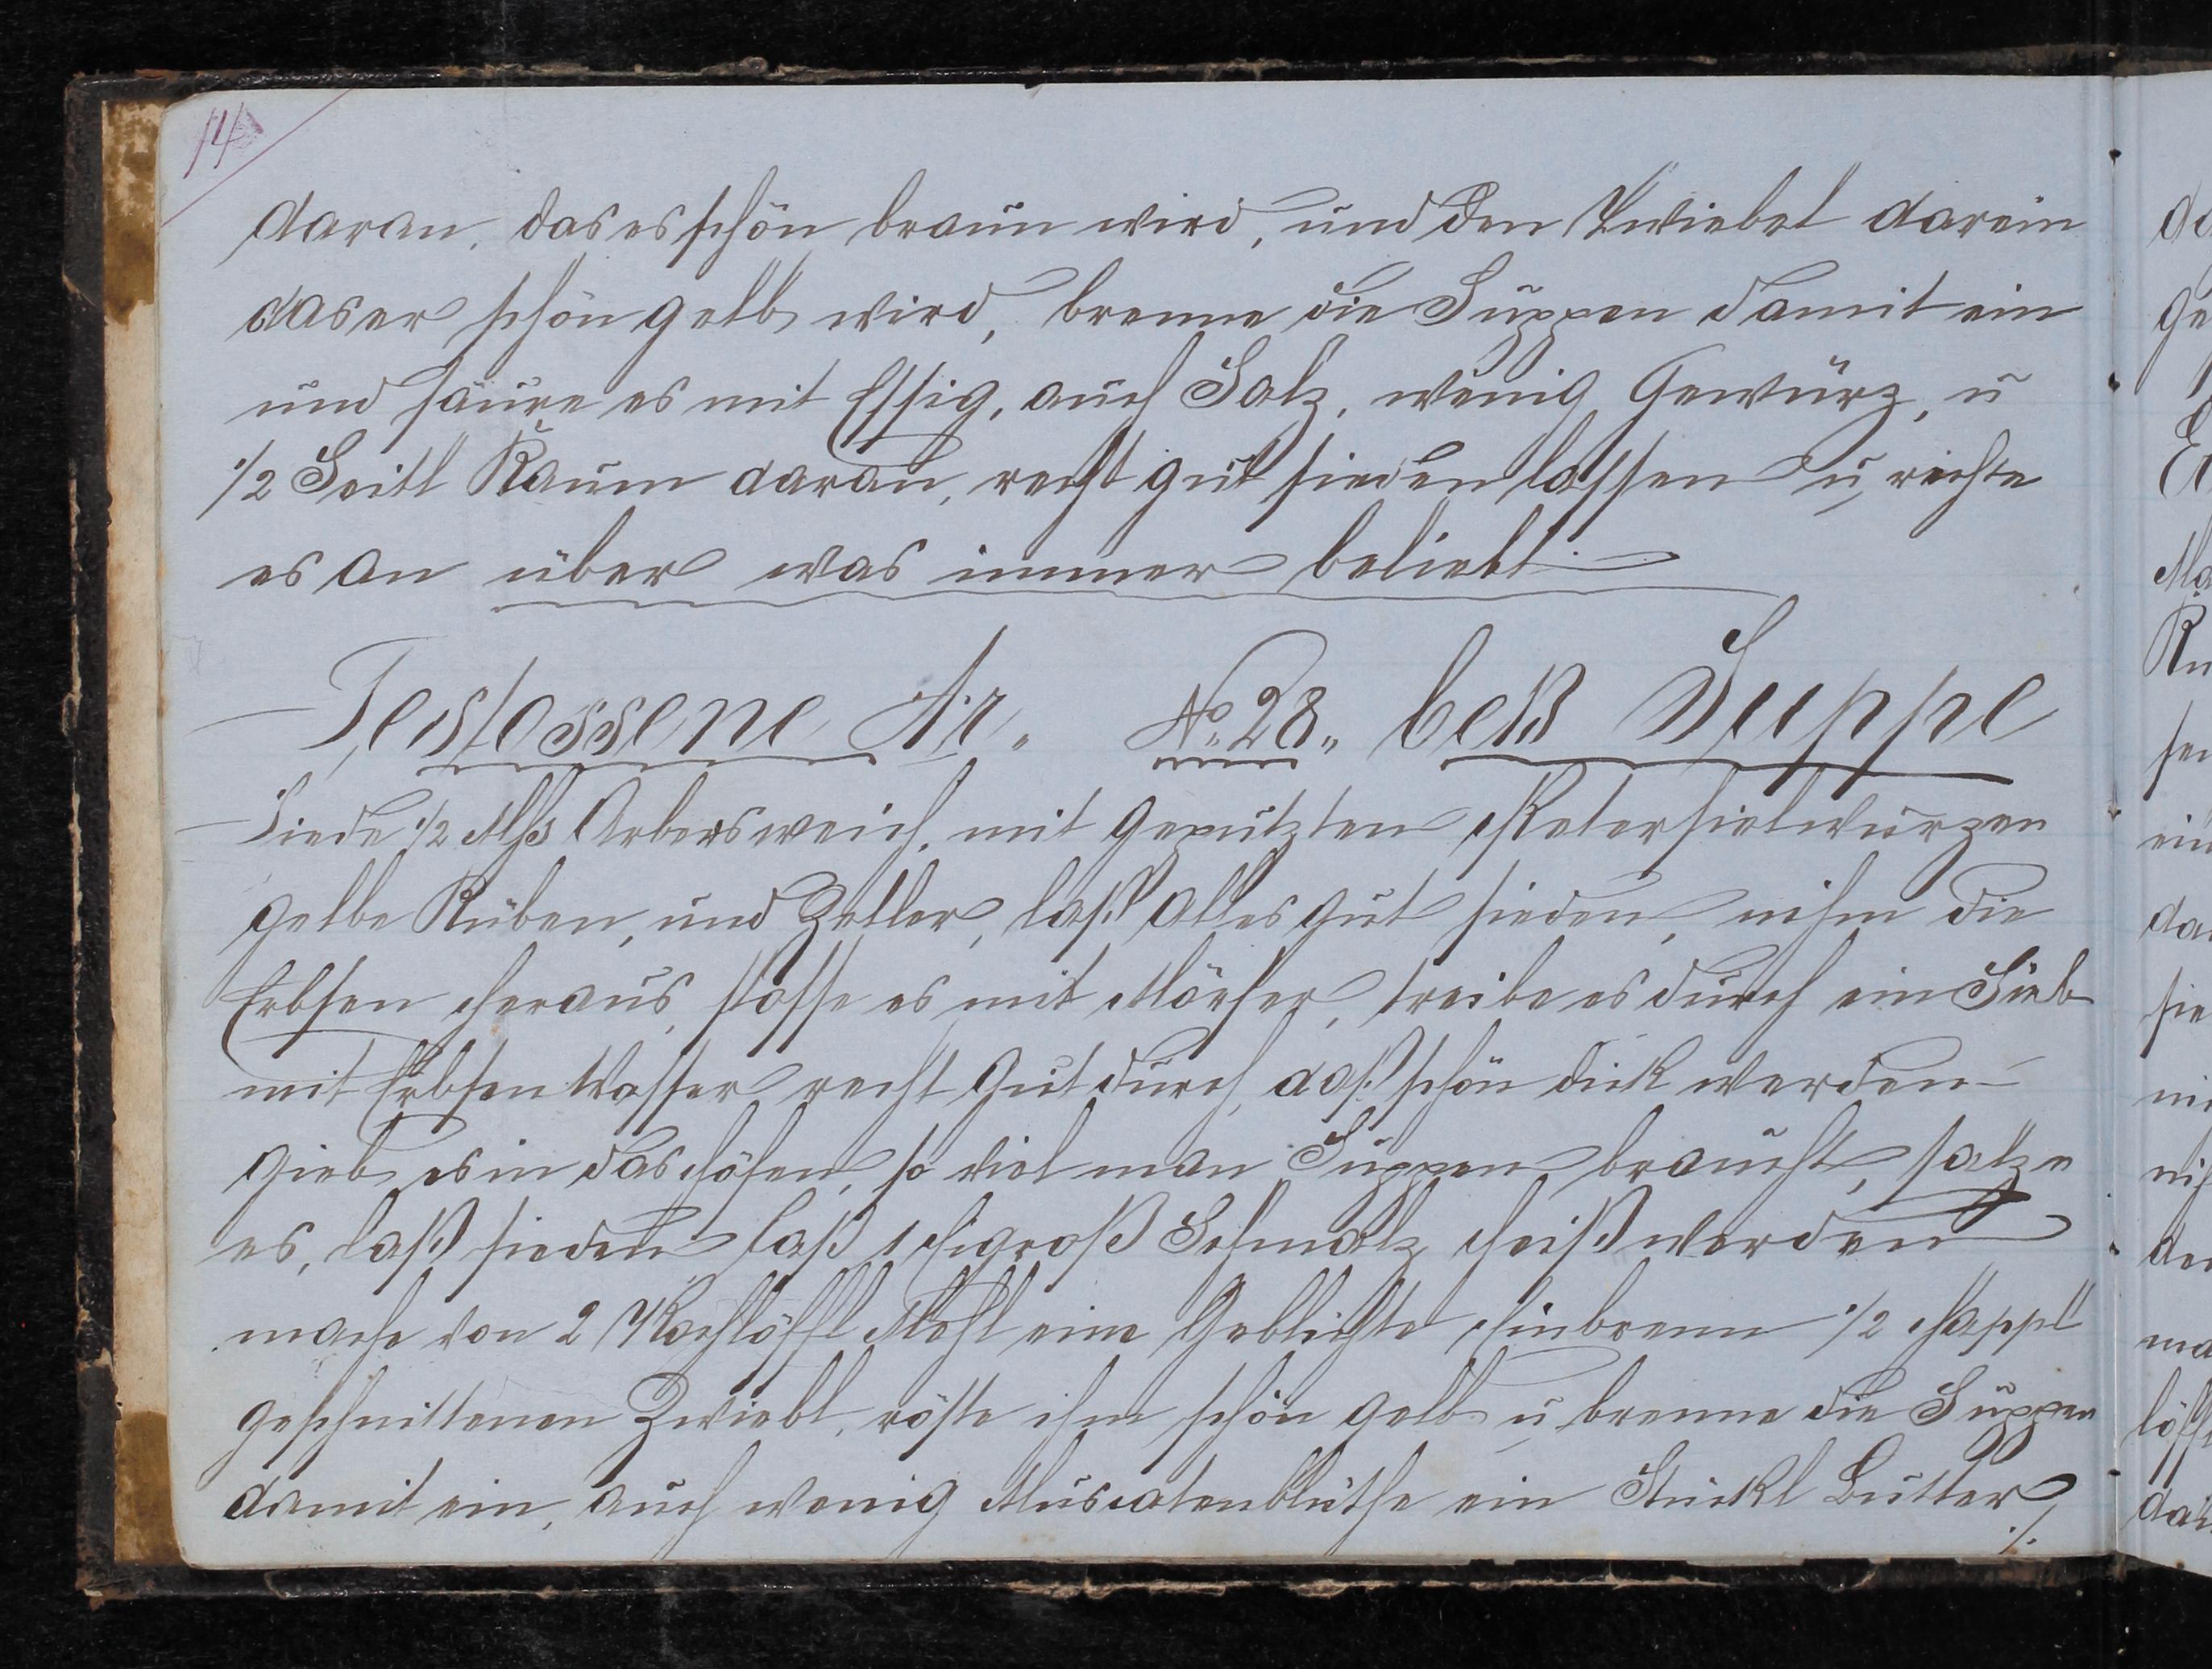 14
daran, das es schön braun wird, und den Zwiebel darein
das er schön gelb wird, brenne die Suppen damit ein
und säure es mit Essig, auch Salz, wenig Gewürz, u
1/2 Seitl Raum daran, recht gut sieden lassen u, richte
es an über was immer beliebt
Gestossene Ar. No. 28. beß Suppe
Siede 1/2 Mß Arbers weich, mit geputzten Petersielwurzen
gelbe Rüben, und Zeller, laß alles gut sieden, nihm die
Erbsen heraus, stosse es mit Mörser, treibe es durch ein Sieb
mit Erbsen Wasser recht gut durch, daß schön dick werden
gieb es in das Höfen, so viel man Suppen braucht, salze
es, laß sieden laß 1 Eigroß Schmalz heiß werden
mache von 2 Kochlöffl Mehl eine Geblichte Einbrenn 1/2 Happl
geschnittenen Zwiebl, röste ihm schön gelb u brenne die Suppen
damit ein, auch wenig Muscatenblüthe ein Stückl Butter
./.